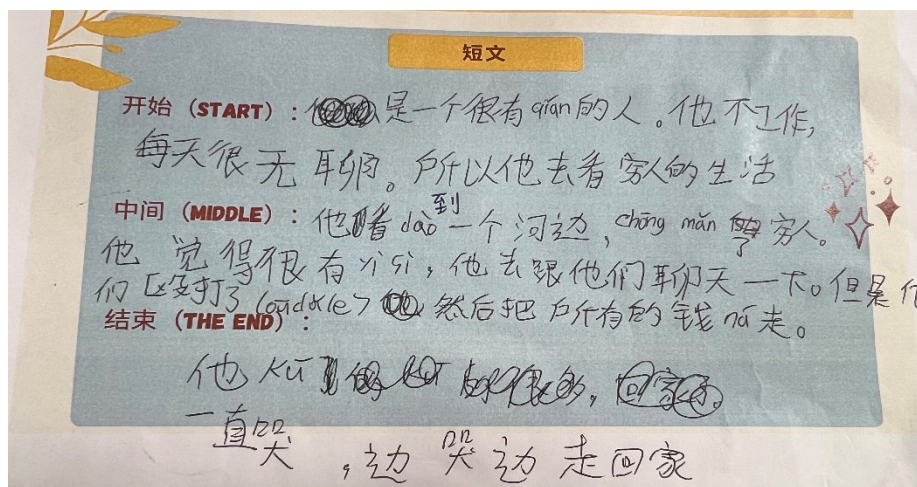 短文
开始（START）：是一个很有qián的人。他不工作,
每天很无聊。所以他去看穷人的生活
中间（MIDDLE）：他看dào到一个河边，chōng mǎn了穷人。
他觉得很有yì si，他去跟他们聊天一下。但是他
们打了 然后把所有的钱ná走。
结束（THE END）：
他kū
一直哭，边哭边走回家